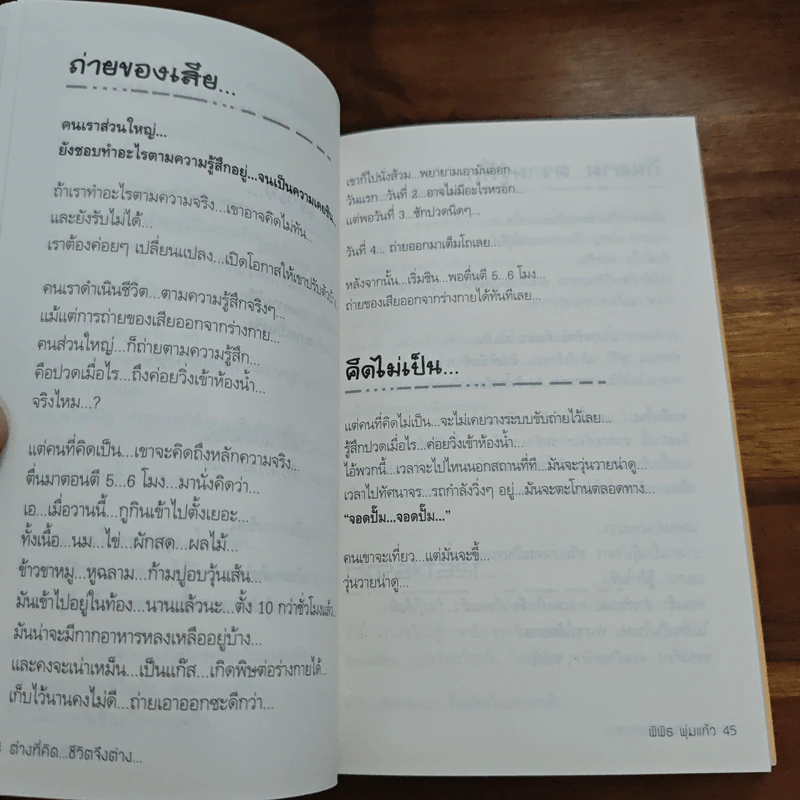 ถ่ายของเสีย...
คนเราส่วนใหญ่...
ยังชอบทำอะไรตามความรู้สึกอยู่...จนเป็นความเคยชิน...
ถ้าเราทำอะไรตามความจริง...เขาอาจคิดไม่ทัน...
และยังรับไม่ได้...
เราต้องค่อยๆ เปลี่ยนแปลง...เปิดโอกาสให้เขาปรับตัว
คนเราดำเนินชีวิต...ตามความรู้สึกจริงๆ...
แม้แต่การถ่ายของเสียออกจากร่างกาย...
คนส่วนใหญ่...ก็ถ่ายตามความรู้สึก...
คือปวดเมื่อไร...ถึงค่อยวิ่งเข้าห้องน้ำ...
จริงไหม...?
แต่คนที่คิดเป็น...เขาจะคิดถึงหลักความจริง...
ตื่นมาตอนตี 5...6 โมง...มานั่งคิดว่า...
เอ...เมื่อวานนี้...กูกินเข้าไปตั้งเยอะ...
ทั้งเนื้อ...นม...ไข่...ผักสด...ผลไม้...
ข้าวขาหมู...หูฉลาม...ก้ามปูอบวุ้นเส้น...
มันเข้าไปอยู่ในท้อง...นานแล้วนะ...ตั้ง 10 กว่าชั่วโมงแล้ว...
มันน่าจะมีกากอาหารหลงเหลืออยู่บ้าง...
และคงจะเน่าเหม็น...เป็นแก๊ส...เกิดพิษต่อร่างกายได้...
เก็บไว้นานคงไม่ดี...ถ่ายเอาออกซะดีกว่า...
ต่างที่คิด...ชีวิตจึงต่าง...
เขาก็ไปนั่งส้วม...พยายามเอามันออก
วันแรก...วันที่ 2...อาจไม่มีอะไรหรอก...
แต่พอวันที่ 3...ชักปวดนิดๆ...
วันที่ 4... ถ่ายออกมาเต็มโถเลย...
หลังจากนั้น...เริ่มชิน...พอตื่นตี 5...6 โมง...
ถ่ายของเสียออกจากร่างกายได้ทันทีเลย...
คิดไม่เป็น...
แต่คนที่คิดไม่เป็น...จะไม่เคยวางระบบขับถ่ายไว้เลย...
รู้สึกปวดเมื่อไร...ค่อยวิ่งเข้าห้องน้ำ...
ไอ้พวกนี้...เวลาจะไปไหนนอกสถานที่ที...มันจะวุ่นวายน่าดู...
เวลาไปทัศนาจร...รถกำลังวิ่งๆ อยู่...มันจะตะโกนตลอดทาง...
“จอดปั๊ม...จอดปั๊ม...”
คนเขาจะเที่ยว...แต่มันจะขี้...
วุ่นวายน่าดู...
พิพิธ พุ่มแก้ว 45